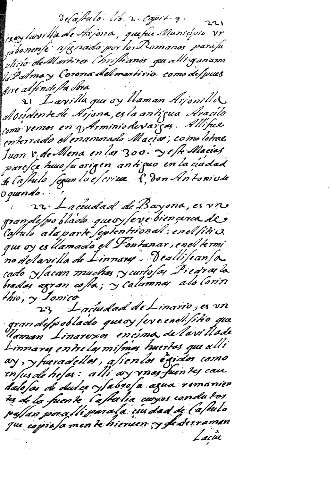 De Castulo. lib. 2. Capit. 9. 221
es oy la villa de Arjona, que fue Municipio Vr
gabonense asignado por los Romanos para su
plicio de Martires Christianos que alli ganaron
la Palma y Corona del martirio como despues
21 La villa que oy llaman Arjonilla
Al occidente de Arjona, es la antigua
como vemos en Alli fue
enterrado el enamorado Macias; como lo trae
Juan de Mena en las 300. y este Macias
parece tuvo su origen antiguo en la ciudad
de Castulo segun lo escrive Don Antonio de
22 La ciudad de Bayona, es vn
grande despoblado que oy se ve bien cerca de
Castulo a la parte septentrional: en el sitio
que oy es llamado el Fontanar, en el termi
no de la villa de Linares. De alli se an sa
cado y sacan muchas y curiosas Piedras la
bradas a gran costa; y columnas a lo Corin
thio, y Jonico.
23 La ciudad de Linario; es vn
gran despoblado que oy se ve en el sitio que
llaman Linarejos encima de la villa de
Linares entre las mismas huertas que alli
ay, y fuera de ellas, asi en los egidos como
en sus dehesas: alli ay vnas fuentes cau
dalosas de dulce y sabrosa agua remanien
tes de la fuente Castalia cuyos conductos
pasan por alli para la ciudad de Castulo
que copiosamente hierven y se derraman